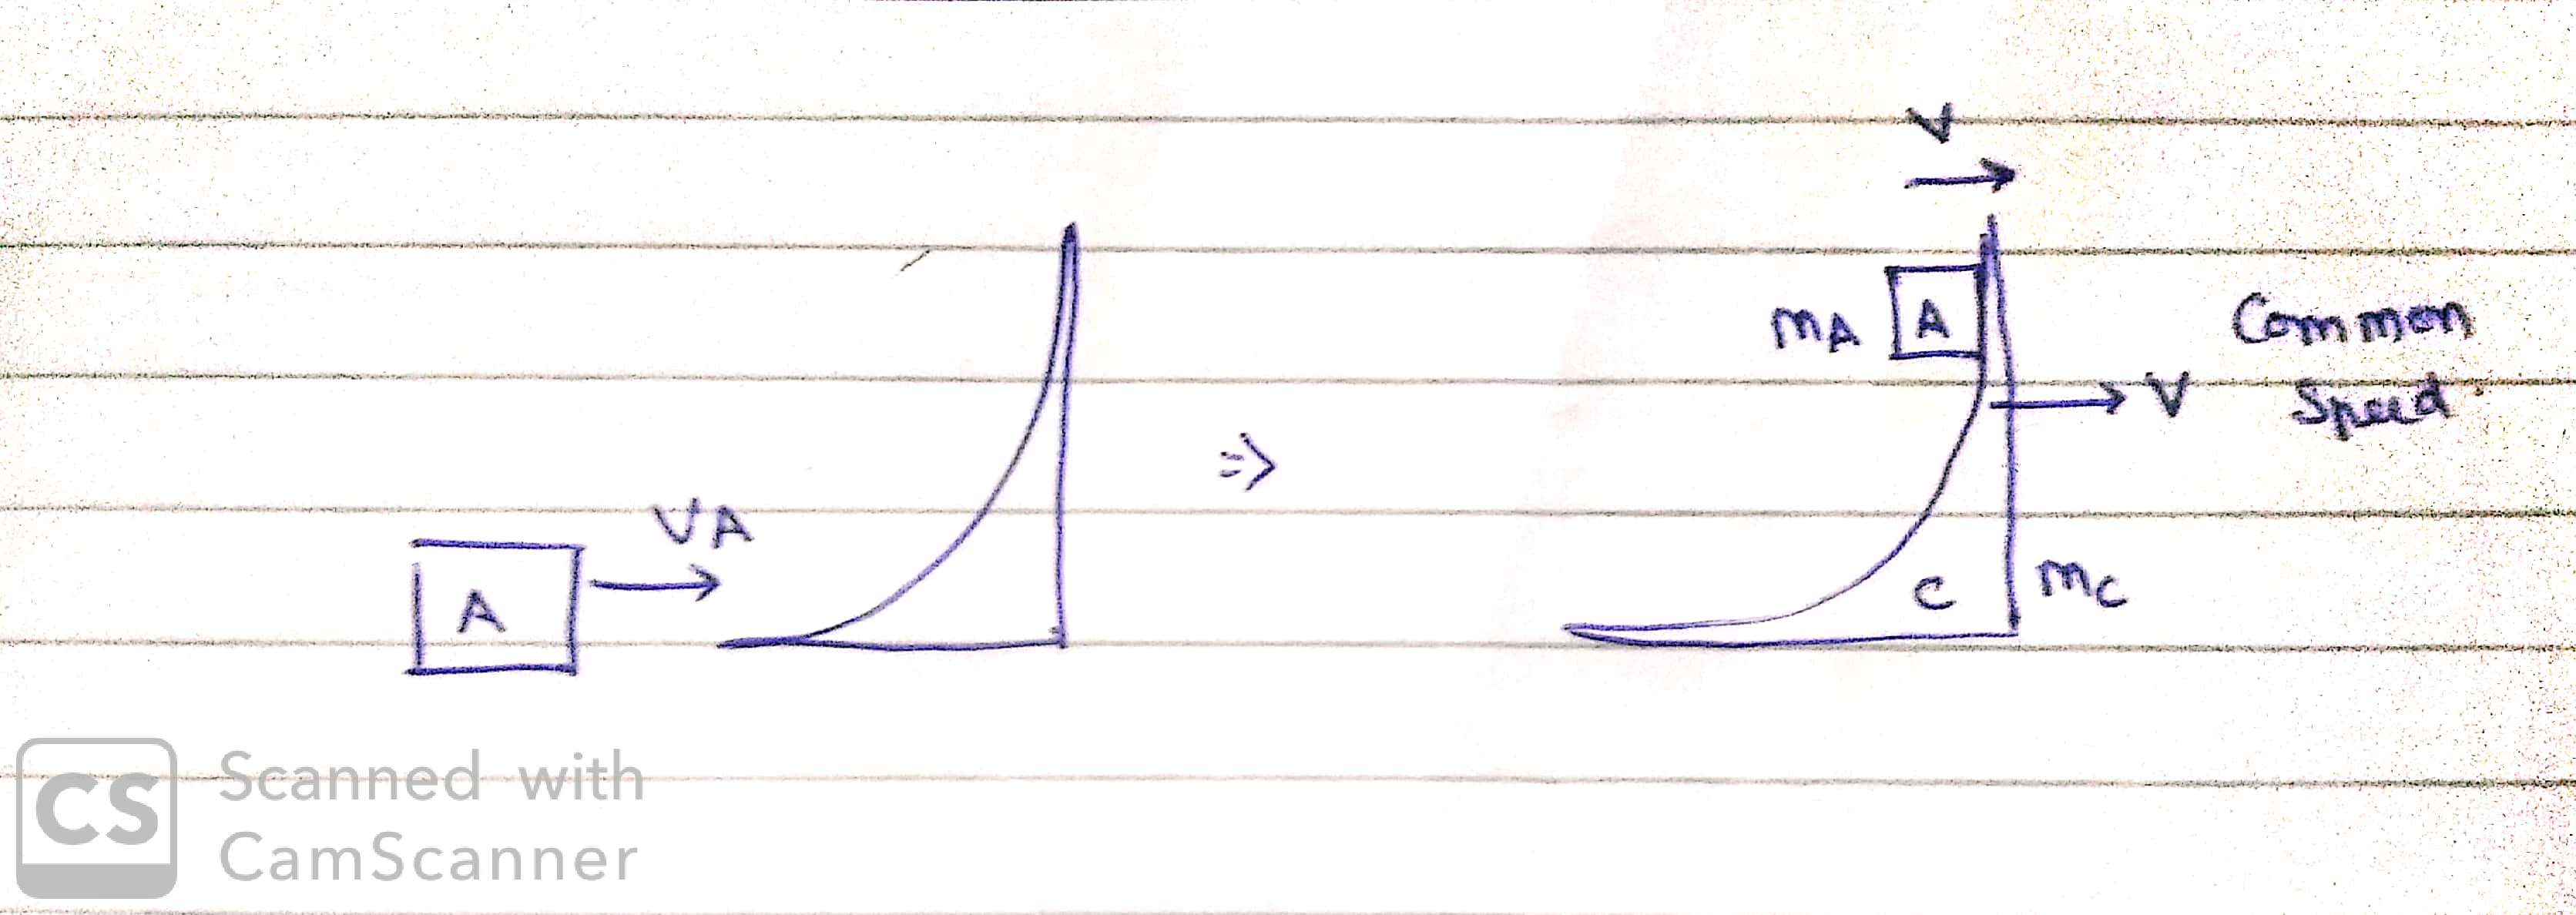 V
mA A
Common
V Speed
VA
A
⇒
C mC
CS Scanned with
CamScanner